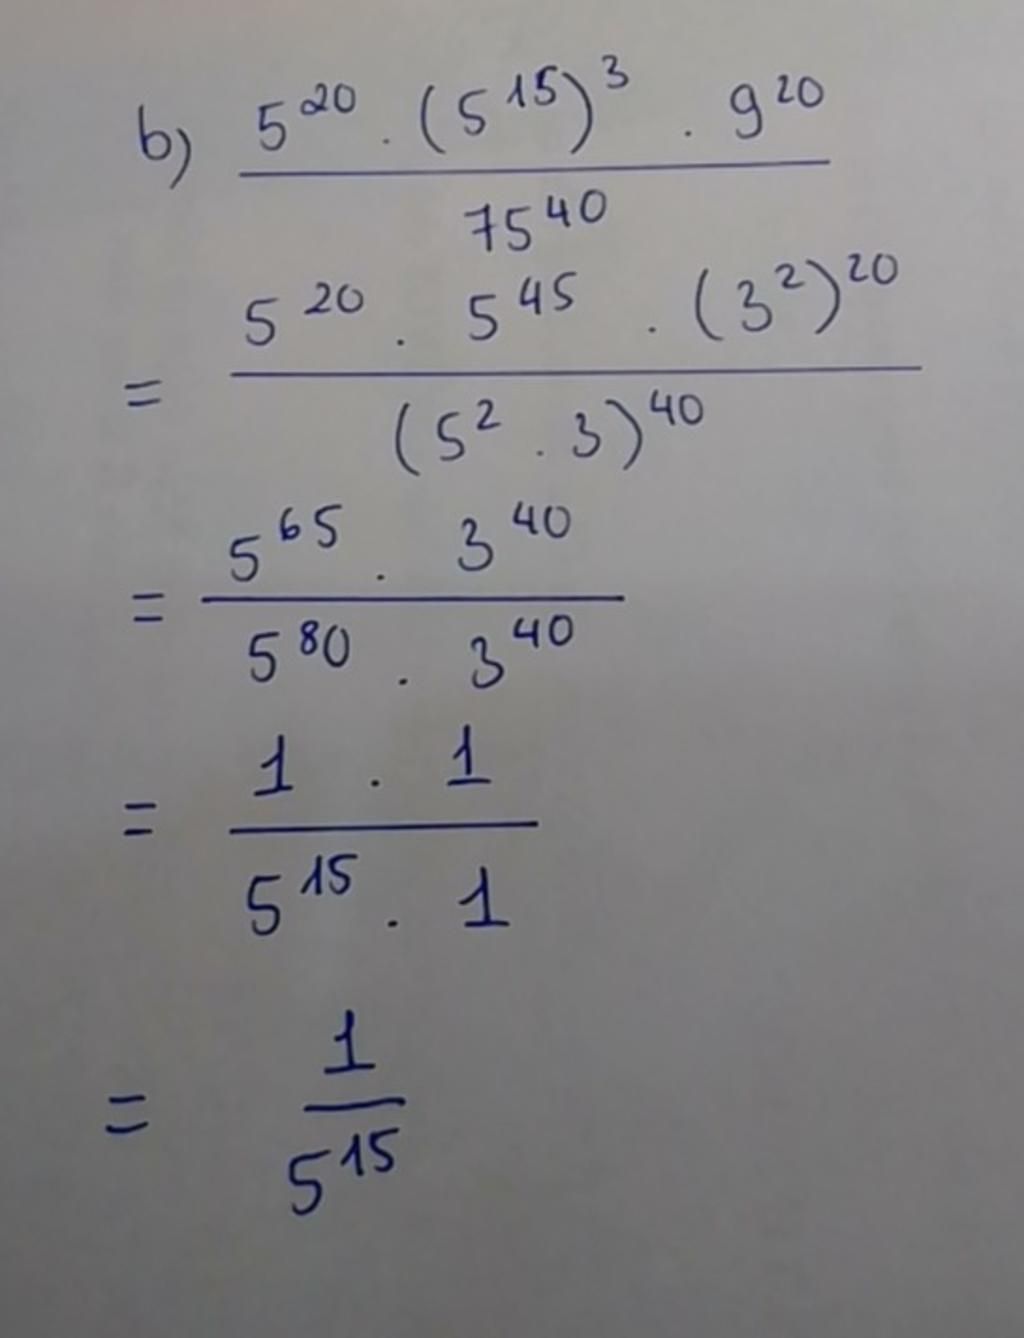 b) 5²⁰ . (5¹⁵)³ . 9²⁰
75⁴⁰
= 5²⁰ . 5⁴⁵ . (3²)²⁰
(5² . 3)⁴⁰
= 5⁶⁵ . 3⁴⁰
5⁸⁰ . 3⁴⁰
= 1 . 1
5¹⁵ . 1
= 1
5¹⁵